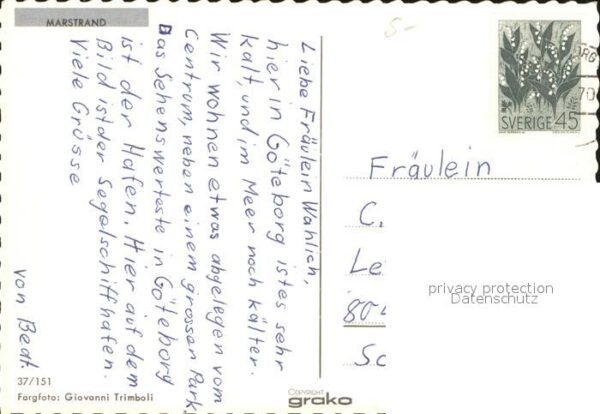 MARSTRAND
Liebe Fräulein Wahlich,
hier in Göteborg ist es sehr
kalt, und im Meer noch kälter.
Wir wohnen etwas abgelegen vom
Centrum, neben einem grossen Park.
Das Sehenswerteste in Göteborg
ist der Hafen. Hier auf dem
Bild ist der Segelschiffhafen.
Viele Grüsse
von Beat.
37/151
Färgfoto: Giovanni Trimboli
COPYRIGHT
grako
5-
SVERIGE 45
70
Fräulein
C.
Le
804
Sc
privacy protection
Datenschutz